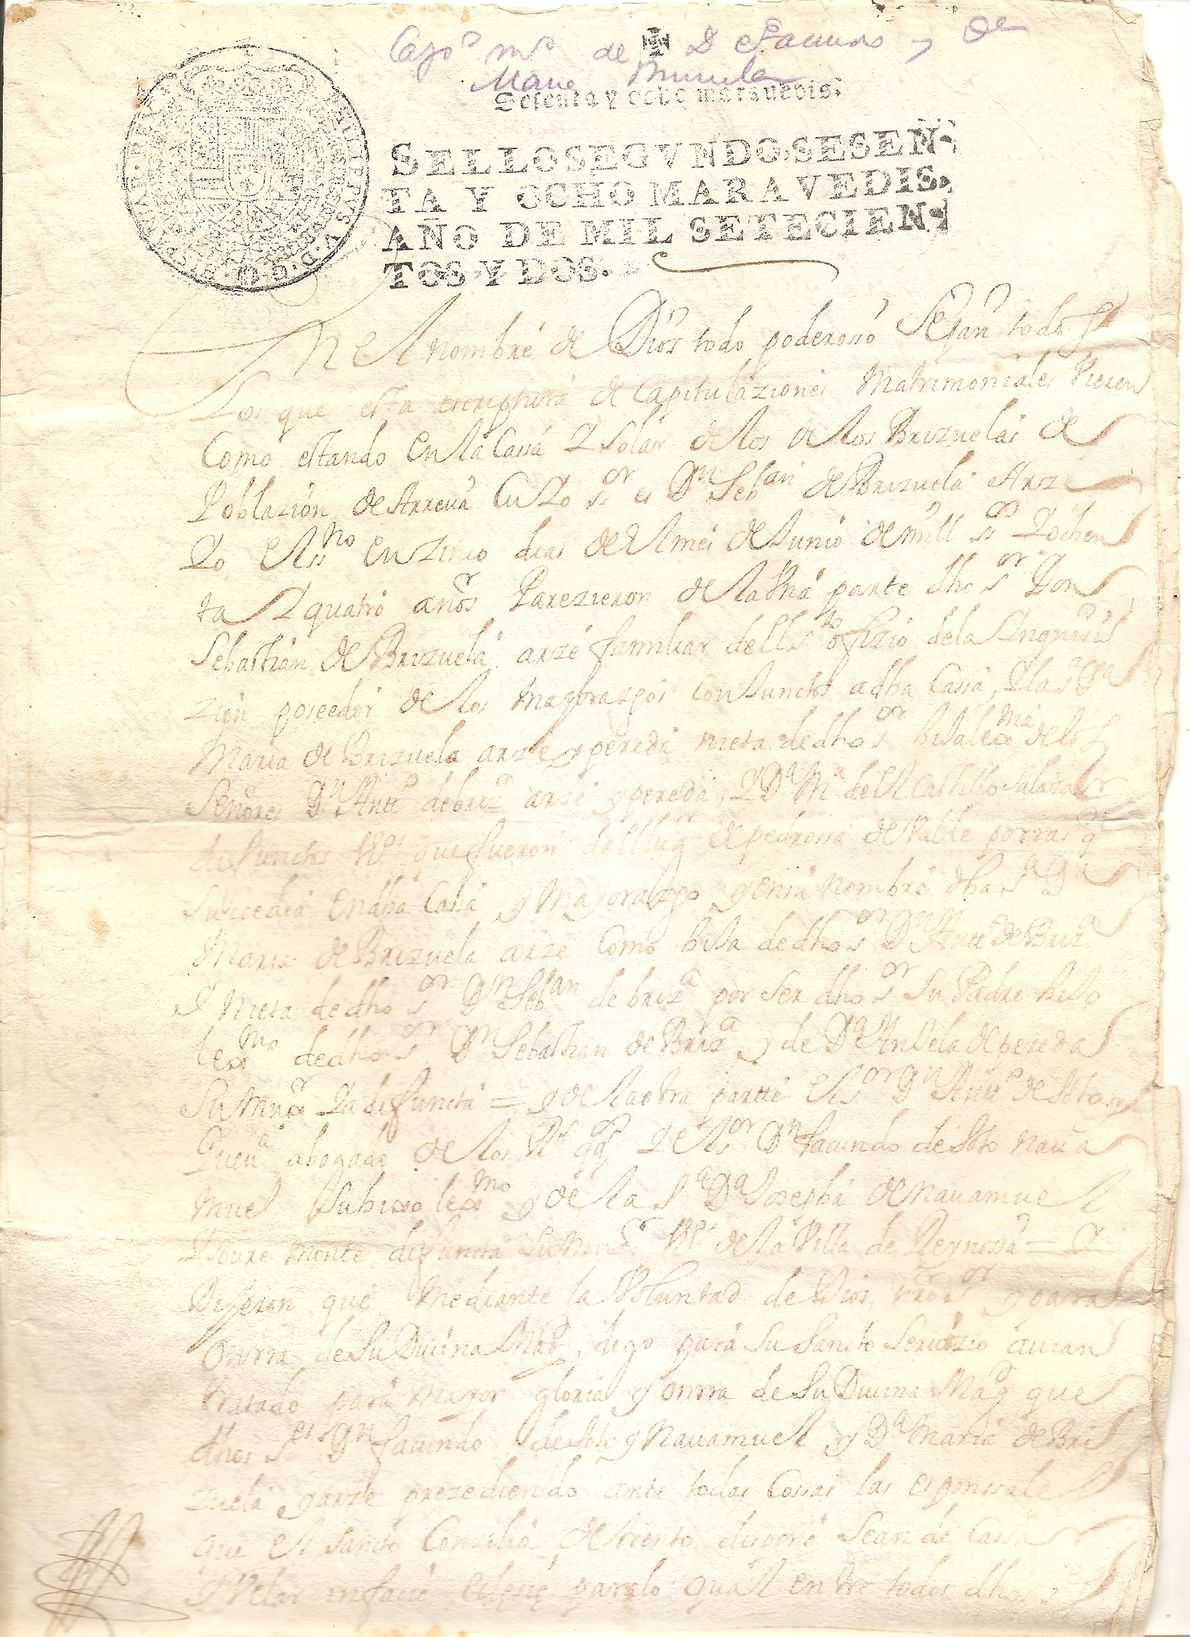 Capˢ mˢ de D Facundo y Dª
Maria
Sesenta y ocho maravedis.
SELLO SEGVNDO, SESEN-
TA Y OCHO MARAVEDIS,
AÑO DE MIL SETECIEN-
TOS Y DOS.
En el nombre de Dios todo poderosso Sepan todos
Los que esta escriptura de Capitulaziones Matrimoniales Vieren
Como estando en la Cassa y Solar de los de los Brizuelas de
Poblazión de Arreva Cuyo sᵒʳ es Dⁿ Sebᵃⁿ de Brizuela Arze
Yo el ssⁿᵒ en zinco dias de el mes de Junio de mill sˢ y ochen
ta y quatro años Parezieron de la una parte dho sᵒʳ Don
Sebastian de Brizuela arze familiar del Sᵗᵒ ofizio de la Inquisi
zion poseedor de los mayorazgos Con Juncto adha Cassa, y la sᵃ Dᵃ
Maria de Brizuela arze y pereda nieta de dho sᵒʳ hija lexᵐᵃ de los
Señores Dⁿ Anttᵒ de brizᵃ arze y pereda, y Dᵃ Mᵃ de el Castillo Salazar
difunctos Vᵒˢ que fueron del lugʳ de pedrossa de Valde porras q
suzedia en dha Cassa y Mayorazgo y en su nombre dha sᵃ Dᵃ
Maria de Brizuela arze Como hija de dho sᵒʳ Dⁿ Anttᵒ de Brizᵃ
y Nieta de dho sᵒʳ Dⁿ Sebᵃⁿ de brizᵃ por ser dho sᵒʳ su Padre hijo
lexᵐᵒ de dho sᵒʳ Dⁿ Sebastian de Brizᵃ y de Dᵃ Anjela de pereda
Su Mugʳ Ya difuncta = y de la otra partte el sᵒʳ Dⁿ Anttᵒ de Soto y
abogado de los Rˢ y el sᵒʳ Dⁿ Facundo de Soto naua
muel Su hijo lexᵐᵒ y de la sᵃ Dᵃ Josepha de Nauamuel
difuncta Su Mugʳ Vᵒˢ de la Villa de Reynossa = Y
Dijeron que Mediante la Voluntad de Dios, nrō sᵒʳ y para
Onrra de Su Diuina Magᵈ, digo para su Santo Seruizio auian
tratado para mayor gloria y onrra de Su Diuina Magᵈ que
dhos sᵉˢ Dⁿ Facundo de Soto y Nauamuel y Dᵃ Maria de Bri
zuela y arze prezediendo ante todas Cossas las
que el Santo Conzilio de trento dispone Sean de Cassar
y Velar infacie eclesie para lo qual entre todos dhos sᵉˢ